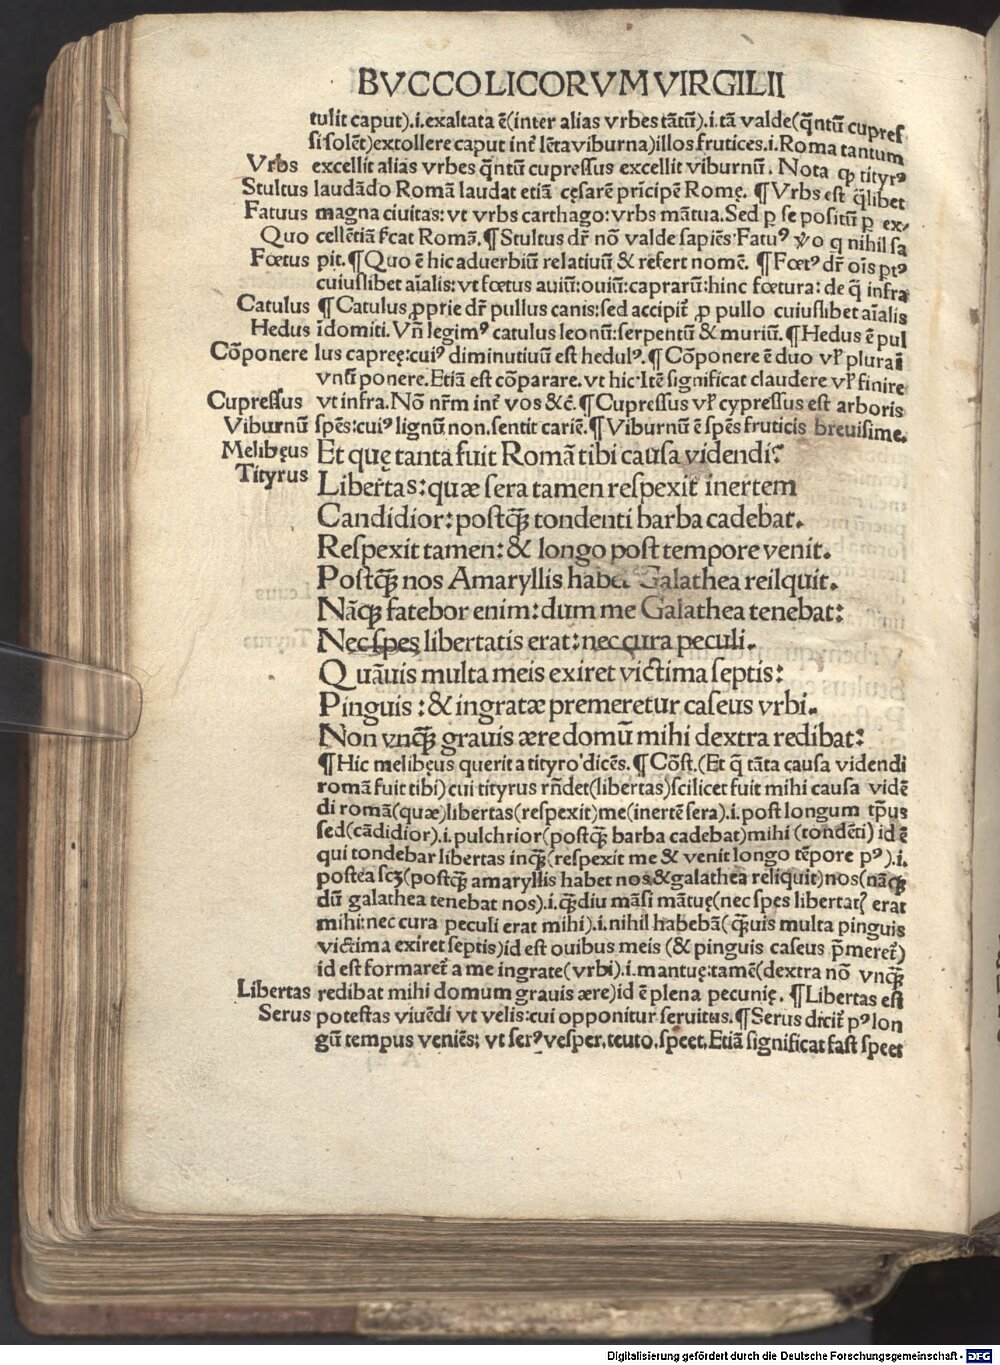 BVCCOLICORVM VIRGILII
tulit caput).i.exaltata ē(inter alias vrbes tātū).i.tā valde(q̄ntū cupres
si solēt)extollere caput inť lēta viburna)illos frutices.i.Roma tantum
Vrbs excellit alias vrbes q̄ntū cupressus excellit viburnū. Nota ꝙ tityrꝰ
Stultus laudādo Romā laudat etiā cęsarē prīcipē Romę. ¶Vrbs est q̄libet
Fatuus magna ciuitas: vt vrbs carthago: vrbs mātua. Sed p se positū p ex/
Quo cellētiā fcat Romā. ¶Stultus dř nō valde sapiēs: Fatuꝰ ꝟo q nihil sa
Fœtus pit. ¶Quo ē hic aduerbiū relatiuū & refert nomē. ¶Fœtꝰ dř oīs ptꝰ
cuiuslibet aīalis: vt fœtus auiū: ouiū: caprarū: hinc fœtura: de q̄ infra
Catulus ¶Catulus ꝓprie dř pullus canis: sed accipiť ꝓ pullo cuiuslibet aīalis
Hedus īdomiti. Vñ legimꝰ catulus leonū: serpentū & muriū. ¶Hedus ē pul
Cōponere lus capreę: cuiꝰ diminutiuū est hedulꝰ. ¶Cōponere ē duo vľ plura ī
vnū ponere. Etiā est cōparare. vt hic. Itē significat claudere vľ finire
Cupressus vt infra. Nō nřm inť vos &č. ¶Cupressus vľ cypressus est arboris
Viburnū spēs: cuiꝰ lignū non sentit cariē. ¶Viburnū ē spēs fruticis breuisime.
Melibęus Et quę tanta fuit Romā tibi causa videndi?
Tityrus Libertas: quæ sera tamen respexit inertem
Candidior: postꝗ̄ tondenti barba cadebat.
Respexit tamen: & longo post tempore venit.
Postꝗ̄ nos Amaryllis habet Galathea reilquit.
Nāꝙ fatebor enim: dum me Galathea tenebat:
Nec spes libertatis erat: nec cura peculi.
Quāuis multa meis exiret victima septis:
Pinguis: & ingratæ premeretur caseus vrbi.
Non vnꝗ̄ grauis ære domū mihi dextra redibat:
¶Hic melibęus querit a tityro dicēs. ¶Cōst. (Et q̄ tāta causa videndi
romā fuit tibi) cui tityrus rñdet(libertas)scilicet fuit mihi causa vidē
di romā(quæ)libertas(respexit)me(inertē sera).i.post longum tp̄us
sed(cādidior).i.pulchrior(postꝗ̄ barba cadebat)mihi (tondēti) id ē
qui tondebar libertas inꝗ̄(respexit me & venit longo tēpore pꝰ).i.
postea scꝫ(postꝗ̄ amaryllis habet nos & galathea reliquit)nos(nāꝙ
dū galathea tenebat nos).i.ꝗ̄diu māsi mātuę(nec spes libertatꝭ erat
mihi: nec cura peculi erat mihi).i.nihil habebā(ꝗ̄uis multa pinguis
victima exiret septis)id est ouibus meis (& pinguis caseus p̄mereť)
id est formareť a me ingrate(vrbi).i.mantuę: tamē(dextra nō vnꝗ̄
Libertas redibat mihi domum grauis ære)id ē plena pecunię. ¶Libertas est
Serus potestas viuēdi vt velis: cui opponitur seruitus. ¶Serus diciť pꝰ lon
gū tempus veniēs: vt serꝰ vesper. teuto. speet. Etiā significat fast speet
Digitalisierung gefördert durch die Deutsche Forschungsgemeinschaft - DFG